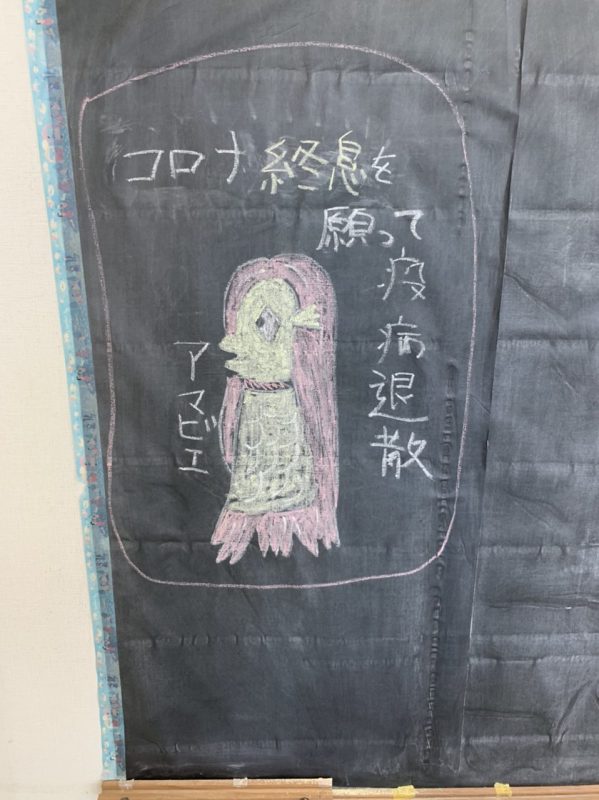 コロナ終息を
願って
疫病退散
アマビエ